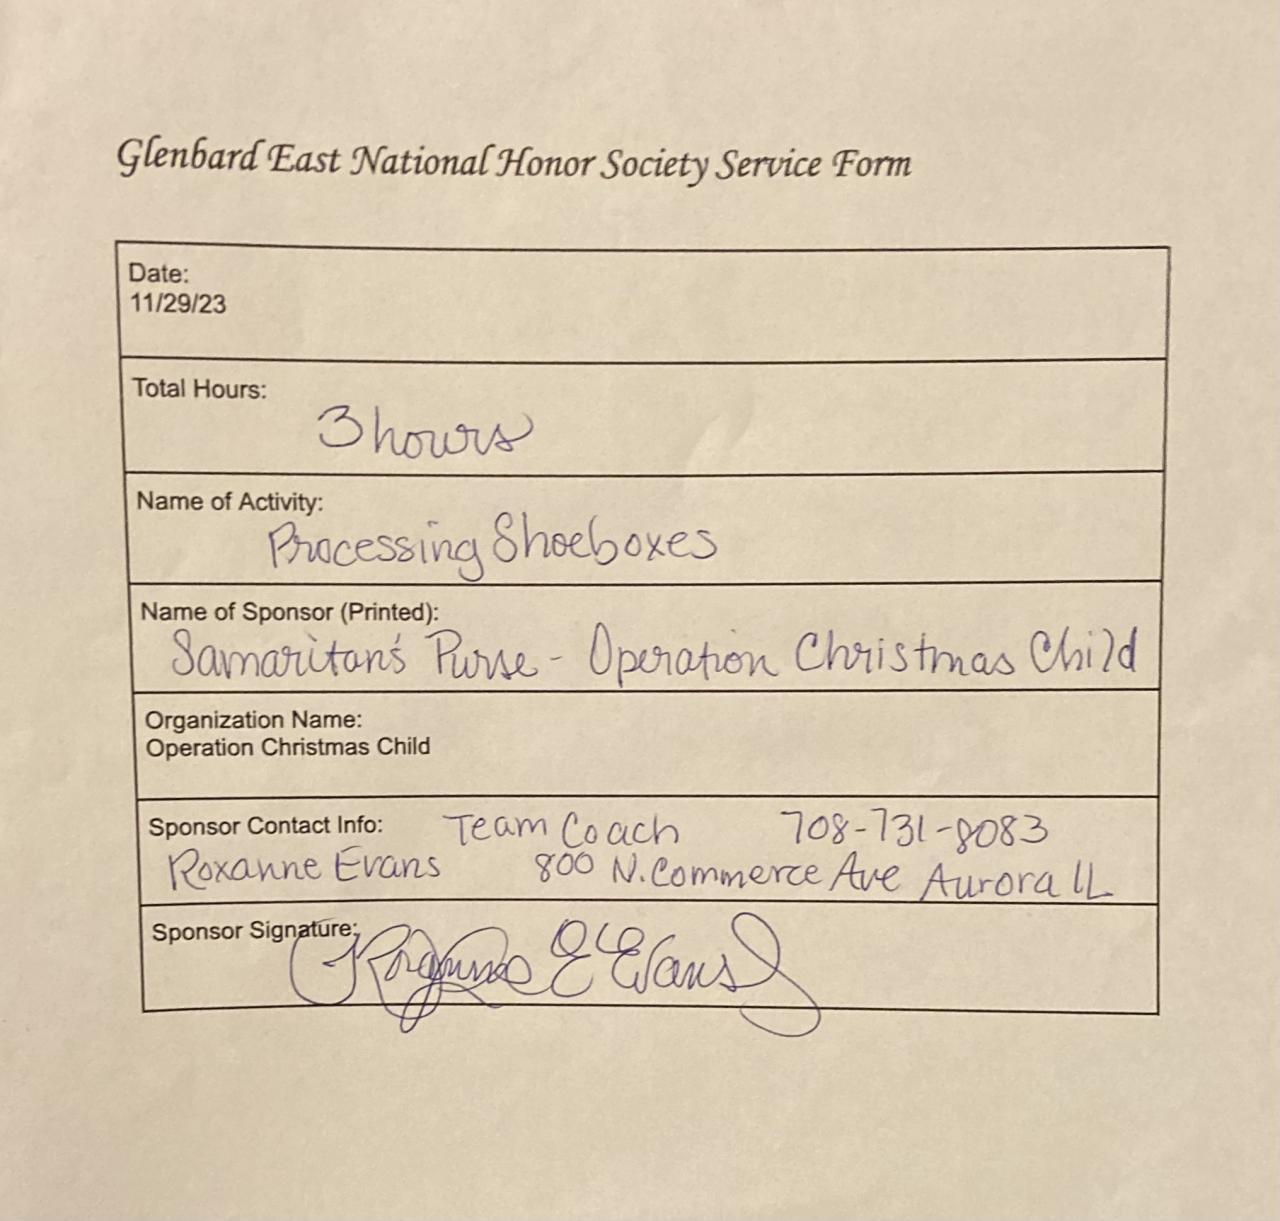 Glenbard East National Honor Society Service Form
Date:
11/29/23
Total Hours:
3 hours
Name of Activity:
Processing Shoeboxes
Name of Sponsor (Printed):
Samaritan's Purse - Operation Christmas Child
Organization Name:
Operation Christmas Child
Sponsor Contact Info: Team Coach 708-731-8083
Roxanne Evans 800 N. Commerce Ave Aurora IL
Sponsor Signature:
Roxanne E Evans